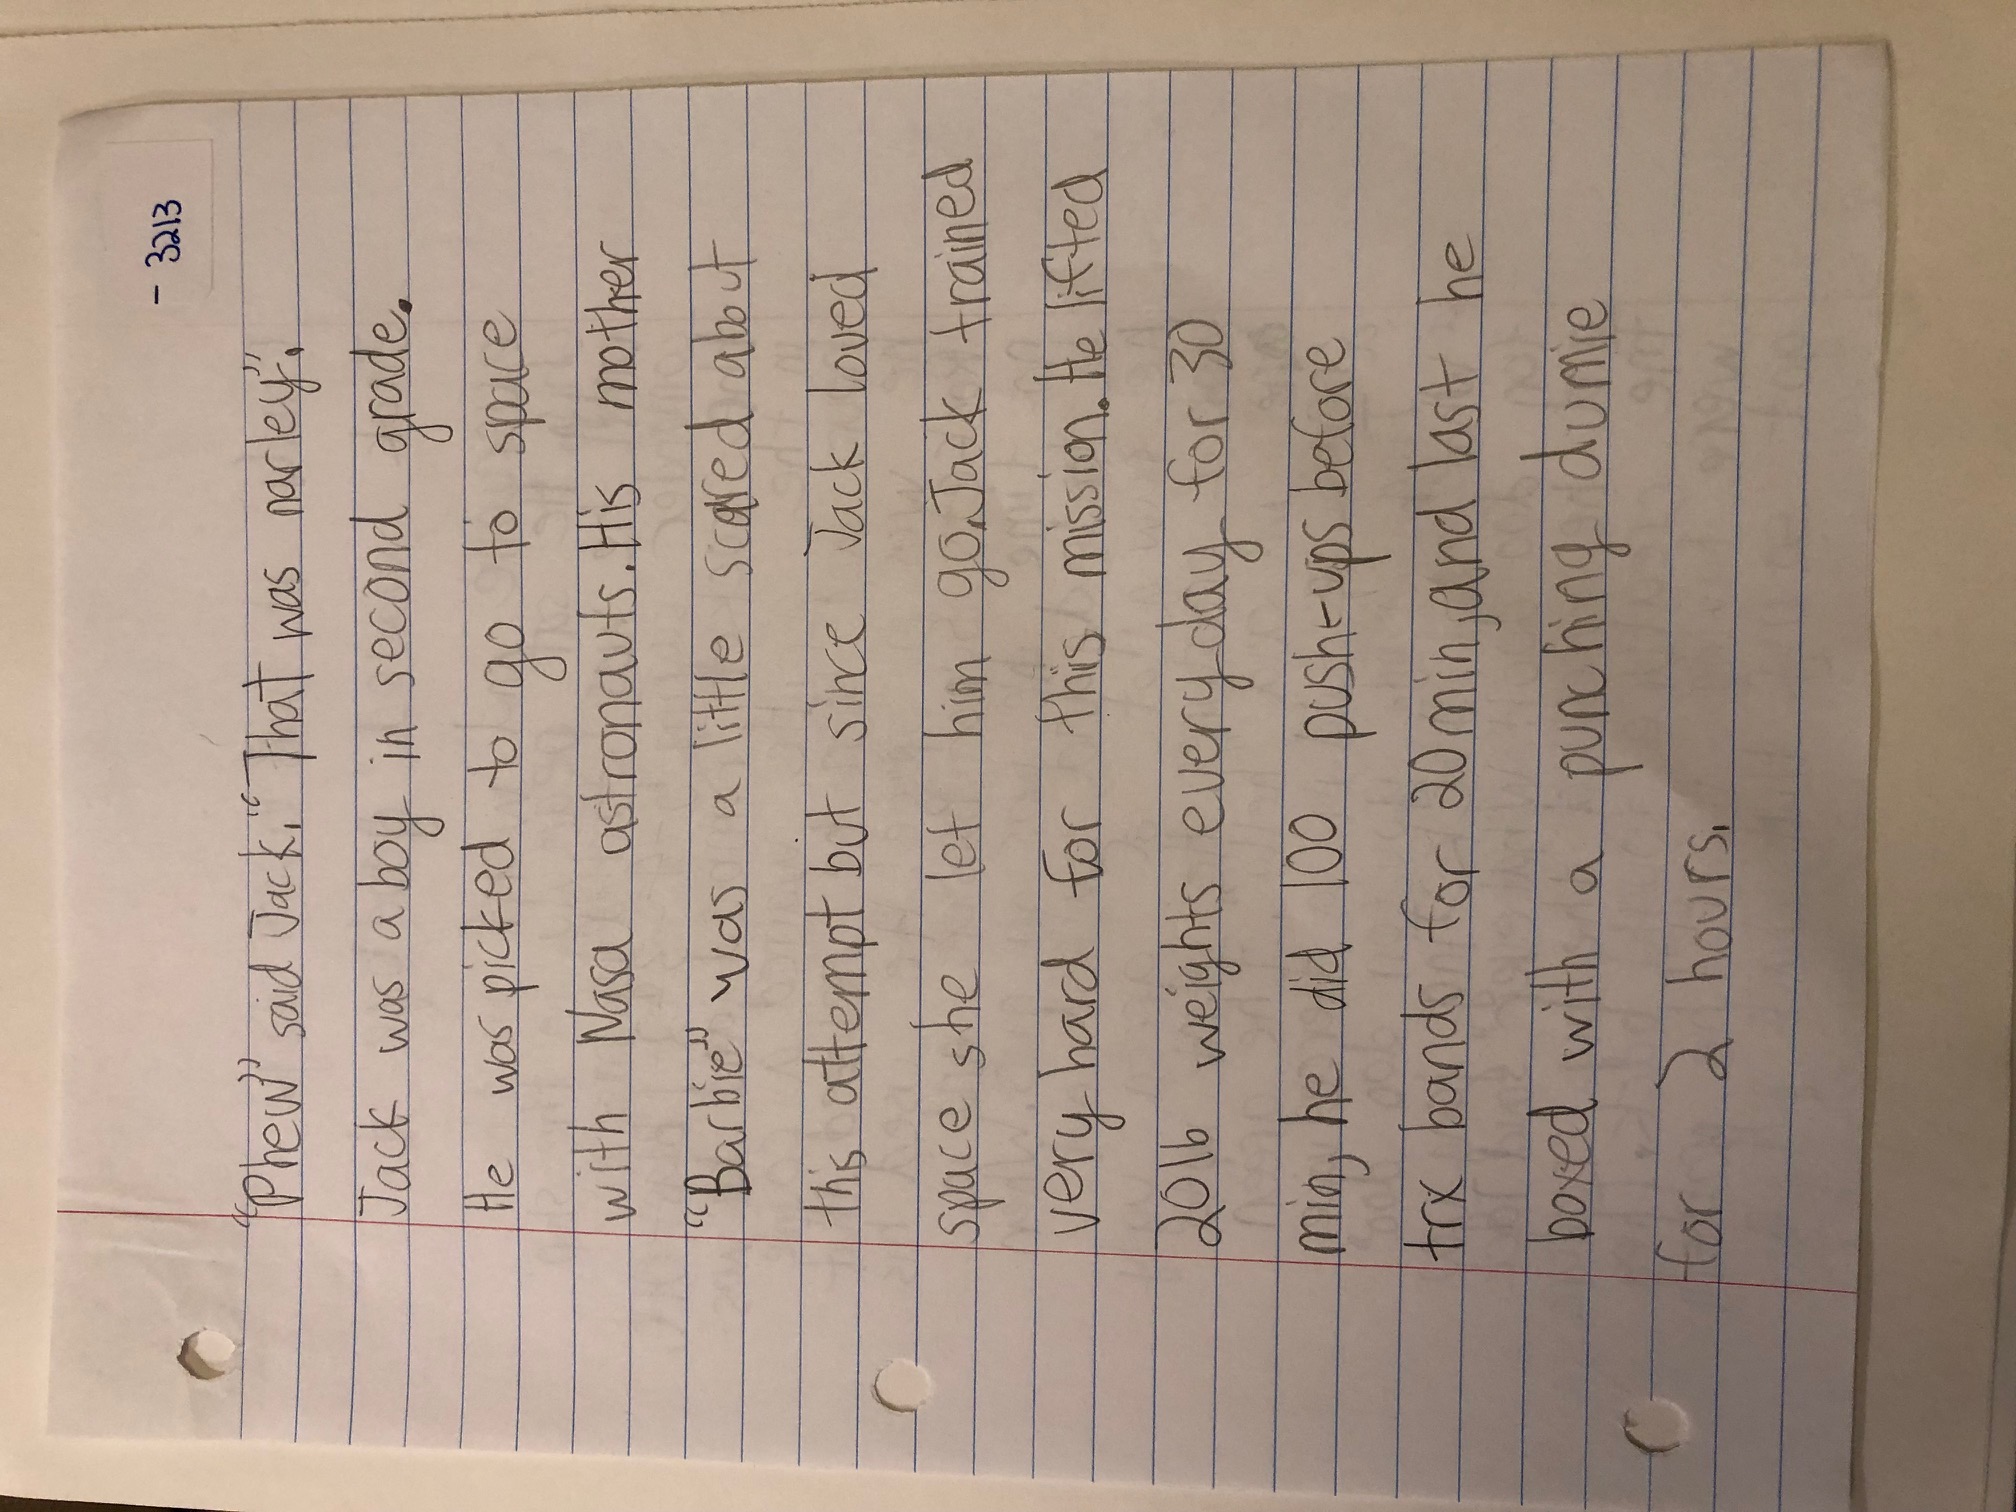 - 3213
"Phew" said Jack. "That was narley".
Jack was a boy in second grade.
He was picked to go to space
with Nasa astronauts. His mother
"Barbie" was a little scared about
this attempt but since Jack loved
space she let him go. Jack trained
very hard for this mission. He lifted
20lb weights every day for 30
min, he did 100 push-ups before
trx bands for 20 min, and last he
boxed with a punching dumie
for 2 hours.